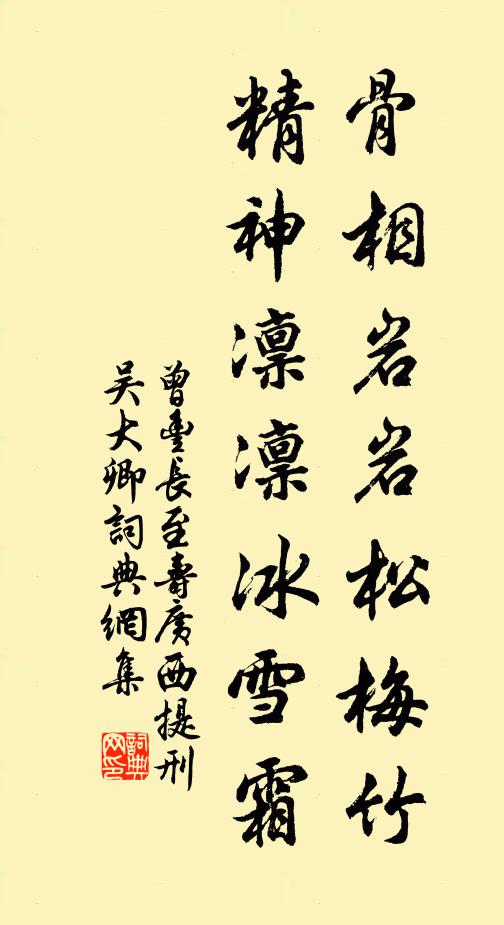 骨相岩岩松梅竹
精神凛凛冰雪霜
曾豐長至壽廣西提刑
吴大卿詞典網集
詞典
网印